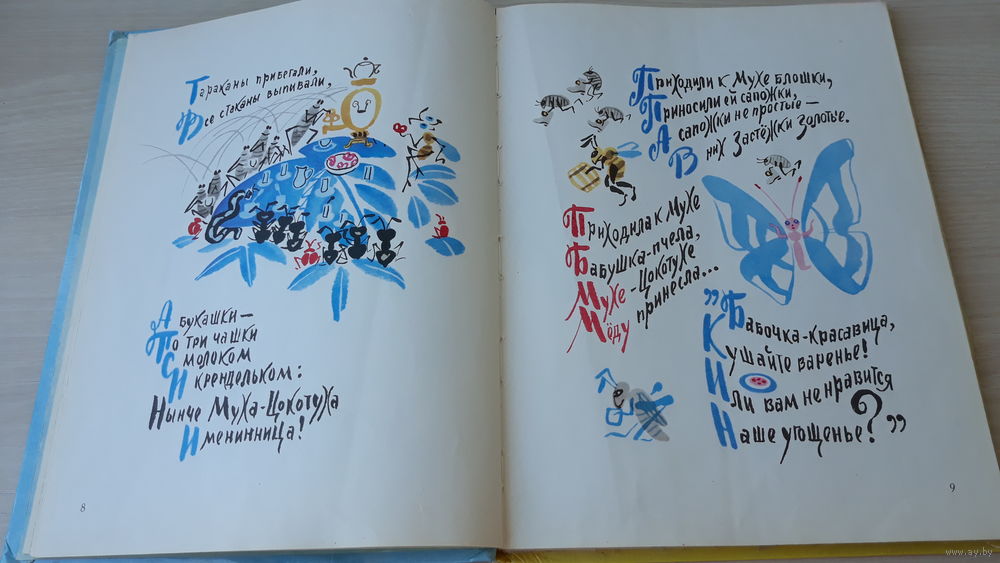 Тараканы прибегали,
Все стаканы выпивали,
А букашки—
По три чашки
С молоком
И крендельком:
Нынче Муха-Цокотуха
Именинница!
8
Приходили к Мухе блошки,
Приносили ей сапожки,
А сапожки не простые—
В них застёжки золотые.
Приходила к Мухе
Бабушка-пчела,
Мухе-Цокотухе
Мёду принесла...
„Бабочка-красавица,
Кушайте варенье!
Или вам не нравится
Наше угощенье?”
9
www.ay.by